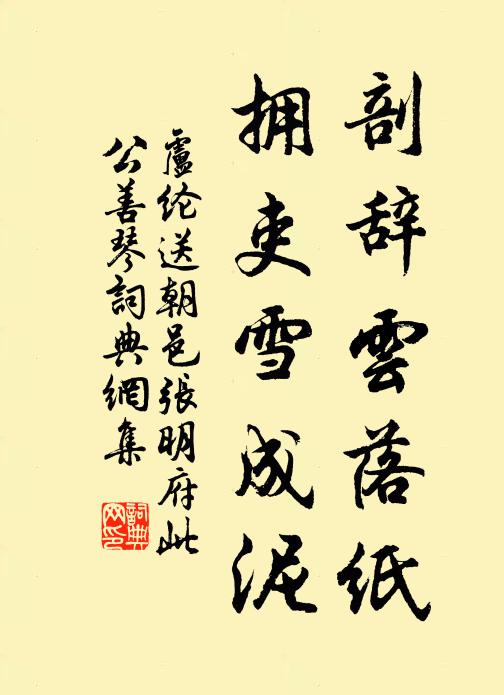 剖辞雲落紙
拥吏雪成泥
盧纶送朝邑張明府此
公善琴詞典網集
詞典
网印